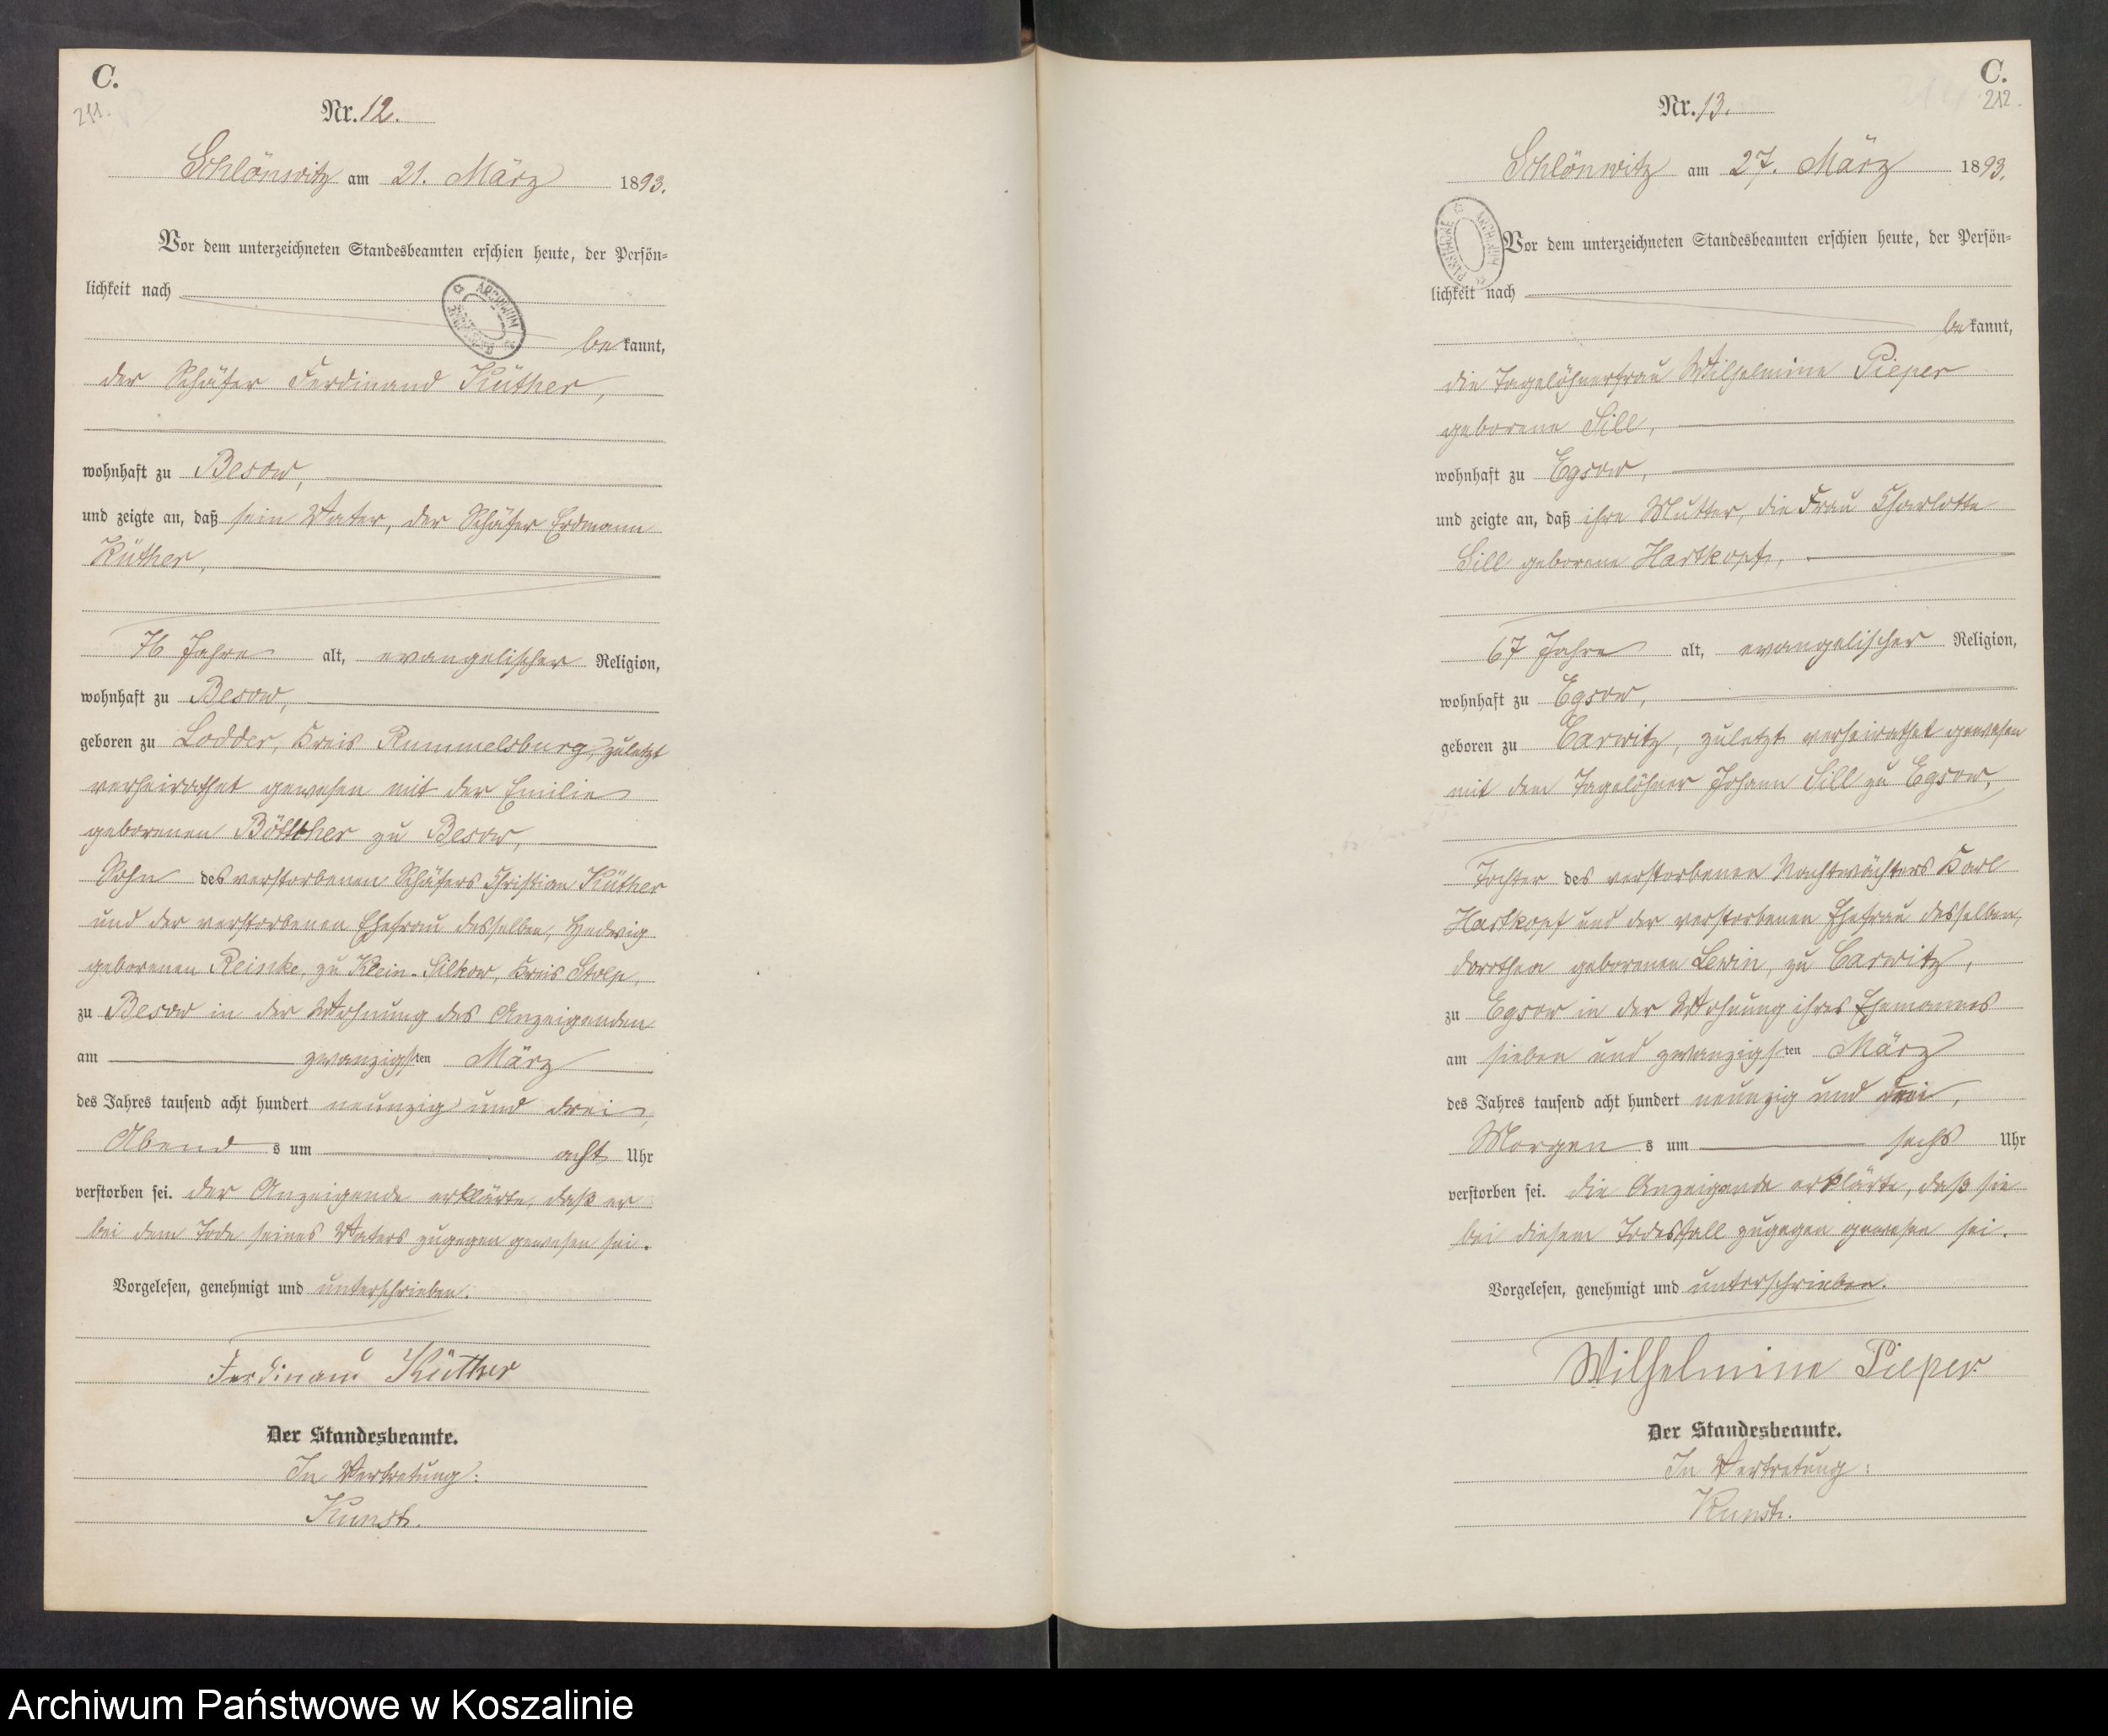 C.
211.
Nr. 12.
Schlönwitz am 21. März 1893.
Vor dem unterzeichneten Standesbeamten erschien heute, der Persön-
lichkeit nach
bekannt,
der Schäfer Ferdinand Küther,
wohnhaft zu Besow,
und zeigte an, daß sein Vater, der Schäfer Erdmann
Küther,
76 Jahre alt, evangelischer Religion,
wohnhaft zu Besow,
geboren zu Lodder, Kreis Rummelsburg, zuletzt
verheirathet gewesen mit der Emilie
geborenen Böttcher zu Besow,
Sohn des verstorbenen Schäfers Christian Küther
und der verstorbenen Ehefrau desselben, Hedwig
geborenen Reinke, zu Klein-Silkow, Kreis Stolp,
zu Besow in der Wohnung des Anzeigenden
am zwanzigsten März
des Jahres tausend acht hundert neunzig und drei,
Abends um acht Uhr
verstorben sei. Der Anzeigende erklärte, daß er
bei dem Tode seines Vaters zugegen gewesen sei.
Vorgelesen, genehmigt und unterschrieben.
Ferdinand Küther
Der Standesbeamte.
In Vertretung:
Kunst.
C.
212.
Nr. 13.
Schlönwitz am 27. März 1893.
ARCHIWUM
Vor dem unterzeichneten Standesbeamten erschien heute, der Persön-
lichkeit nach
bekannt,
die Tagelöhnerfrau Wilhelmine Pieper
geborene Sill,
wohnhaft zu Egsow,
und zeigte an, daß ihre Mutter, die Frau Charlotte
Sill geborene Hartkopf,
67 Jahre alt, evangelischer Religion,
wohnhaft zu Egsow,
geboren zu Carwitz, zuletzt verheirathet gewesen
mit dem Tagelöhner Johann Sill zu Egsow,
Tochter des verstorbenen Nachtwächters Karl
Hartkopf und der verstorbenen Ehefrau desselben,
Dorothea geborenen Lewin, zu Carwitz,
zu Egsow in der Wohnung ihres Ehemannes
am sieben und zwanzigsten März
des Jahres tausend acht hundert neunzig und drei,
Morgens um sechs Uhr
verstorben sei. Die Anzeigende erklärte, daß sie
bei diesem Todesfall zugegen gewesen sei.
Vorgelesen, genehmigt und unterschrieben.
Wilhelmine Pieper.
Der Standesbeamte.
In Vertretung:
Kunst.
Archiwum Państwowe w Koszalinie